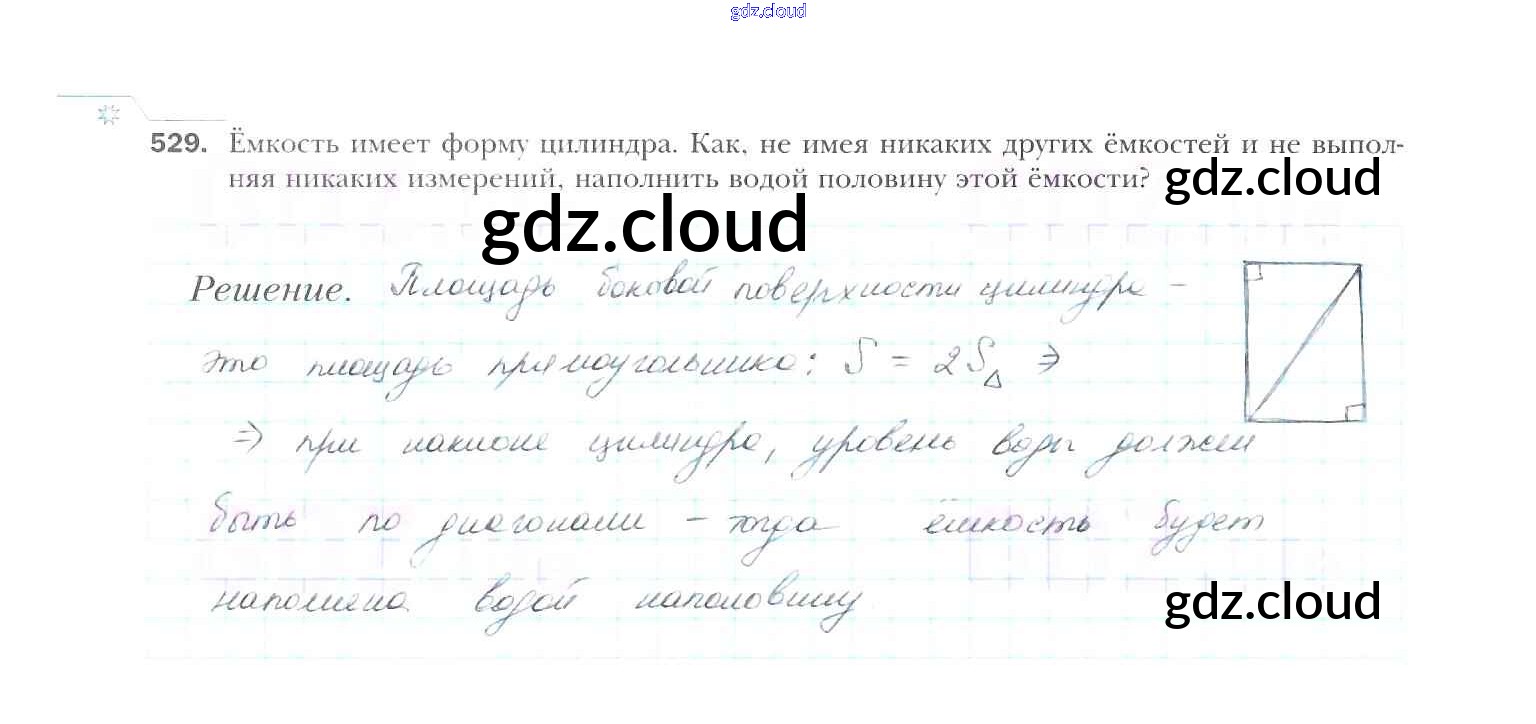 gdz.cloud
529. Ёмкость имеет форму цилиндра. Как, не имея никаких других ёмкостей и не выпол-
няя никаких измерений, наполнить водой половину этой ёмкости?
gdz.cloud
gdz.cloud
Решение. Площадь боковой поверхности цилиндра –
это площадь прямоугольника: S = 2S△ ⇒
⇒ при наклоне цилиндра, уровень воды должен
быть по диагонали – тогда ёмкость будет
наполнена водой наполовину
gdz.cloud